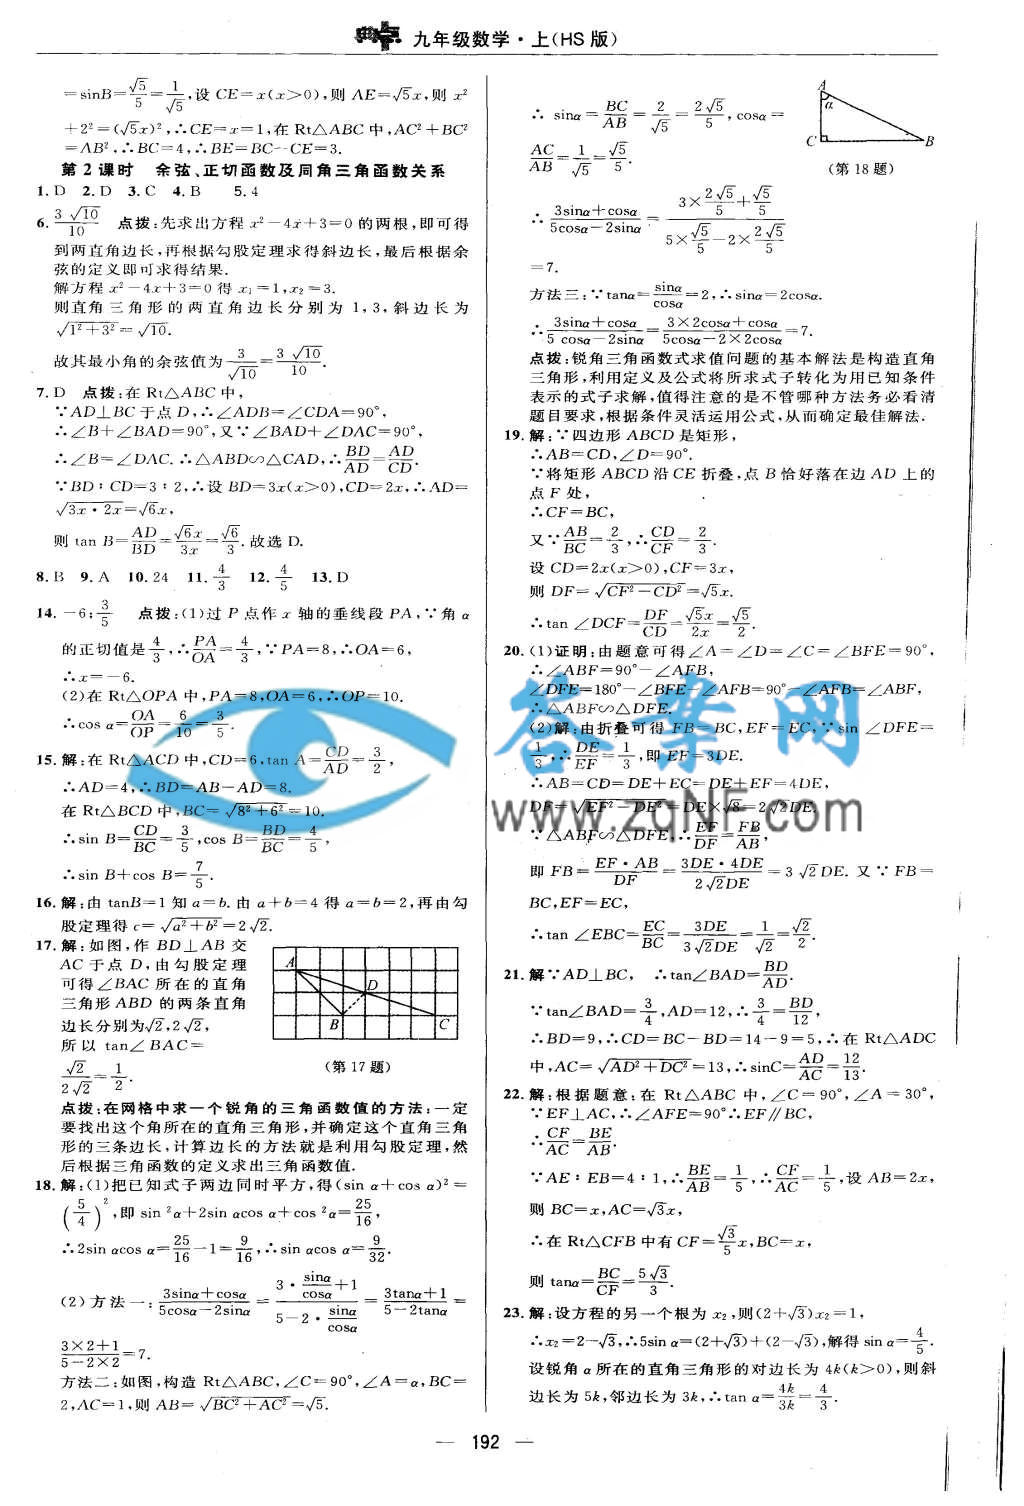 典点 九年级数学·上(HS版)
=sinB=√5/5=1/√5,设CE=x(x>0),则AE=√5x,则x²
+2²=(√5x)²,∴CE=x=1,在Rt△ABC中,AC²+BC²
=AB²,∴BC=4,∴BE=BC-CE=3.
第2课时 余弦、正切函数及同角三角函数关系
1. D 2. D 3. C 4. B 5. 4
6. 3√10/10 点拨:先求出方程x²-4x+3=0的两根,即可得
到两直角边长,再根据勾股定理求得斜边长,最后根据余
弦的定义即可求得结果.
解方程x²-4x+3=0得x₁=1,x₂=3.
则直角三角形的两直角边长分别为1,3,斜边长为
√(1²+3²)=√10.
故其最小角的余弦值为3/√10=3√10/10.
7. D 点拨:在Rt△ABC中,
∵AD⊥BC于点D,∴∠ADB=∠CDA=90°,
∴∠B+∠BAD=90°,又∵∠BAD+∠DAC=90°,
∴∠B=∠DAC.∴△ABD∽△CAD,∴BD/AD=AD/CD.
∵BD:CD=3:2,∴设BD=3x(x>0),CD=2x,∴AD=
√(3x·2x)=√6x,
则tan B=AD/BD=√6x/3x=√6/3.故选D.
8. B 9. A 10. 24 11. 4/3 12. 4/5 13. D
14. -6;3/5 点拨:(1)过P点作x轴的垂线段PA,∵角α
的正切值是4/3,∴PA/OA=4/3,∵PA=8,∴OA=6,
∴x=-6.
(2)在Rt△OPA中,PA=8,OA=6,∴OP=10.
∴cos α=OA/OP=6/10=3/5.
15. 解:在Rt△ACD中,CD=6,tan A=CD/AD=3/2,
∴AD=4,∴BD=AB-AD=8.
在Rt△BCD中,BC=√(8²+6²)=10.
∴sin B=CD/BC=3/5,cos B=BD/BC=4/5,
∴sin B+cos B=7/5.
16. 解:由tanB=1知a=b.由a+b=4得a=b=2,再由勾
股定理得c=√(a²+b²)=2√2.
17. 解:如图,作BD⊥AB交
AC于点D,由勾股定理
可得∠BAC所在的直角
三角形ABD的两条直角
边长分别为√2,2√2,
所以tan∠BAC=
√2/2√2=1/2.
A
D
B
C
(第17题)
点拨:在网格中求一个锐角的三角函数值的方法:一定
要找出这个角所在的直角三角形,并确定这个直角三角
形的三条边长,计算边长的方法就是利用勾股定理,然
后根据三角函数的定义求出三角函数值.
18. 解:(1)把已知式子两边同时平方,得(sin α+cos α)²=
(5/4)²,即sin²α+2sin αcos α+cos²α=25/16,
∴2sin αcos α=25/16-1=9/16,∴sin αcos α=9/32.
(2)方法一:(3sinα+cosα)/(5cosα-2sinα)=(3·sinα/cosα+1)/(5-2·sinα/cosα)=(3tanα+1)/(5-2tanα)=
(3×2+1)/(5-2×2)=7.
方法二:如图,构造Rt△ABC,∠C=90°,∠A=α,BC=
2,AC=1,则AB=√(BC²+AC²)=√5.
∴sinα=BC/AB=2/√5=2√5/5,cosα=
AC/AB=1/√5=√5/5.
A
α
C
B
(第18题)
∴(3sinα+cosα)/(5cosα-2sinα)=(3×2√5/5+√5/5)/(5×√5/5-2×2√5/5)
=7.
方法三:∵tanα=sinα/cosα=2,∴sinα=2cosα.
∴(3sinα+cosα)/(5cosα-2sinα)=(3×2cosα+cosα)/(5cosα-2×2cosα)=7.
点拨:锐角三角函数式求值问题的基本解法是构造直角
三角形,利用定义及公式将所求式子转化为用已知条件
表示的式子求解,值得注意的是不管哪种方法务必看清
题目要求,根据条件灵活运用公式,从而确定最佳解法.
19. 解:∵四边形ABCD是矩形,
∴AB=CD,∠D=90°.
∵将矩形ABCD沿CE折叠,点B恰好落在边AD上的
点F处,
∴CF=BC,
又∵AB/BC=2/3,∴CD/CF=2/3.
设CD=2x(x>0),CF=3x,
则DF=√(CF²-CD²)=√5x.
∴tan∠DCF=DF/CD=√5x/2x=√5/2.
20. (1)证明:由题意可得∠A=∠D=∠C=∠BFE=90°,
∴∠ABF=90°-∠AFB,
∠DFE=180°-∠BFE-∠AFB=90°-∠AFB=∠ABF,
∴△ABF∽△DFE.
(2)解:由折叠可得FB=BC,EF=EC,∵sin∠DFE=
1/3,∴DE/EF=1/3,即EF=3DE.
∴AB=CD=DE+EC=DE+EF=4DE,
DF=√(EF²-DE²)=DE×√8=2√2DE.
∵△ABF∽△DFE,∴EF/DF=FB/AB,
即FB=EF·AB/DF=3DE·4DE/2√2DE=3√2DE.又∵FB=
BC,EF=EC,
∴tan∠EBC=EC/BC=3DE/3√2DE=1/√2=√2/2.
21. 解∵AD⊥BC, ∴tan∠BAD=BD/AD.
∵tan∠BAD=3/4,AD=12,∴3/4=BD/12,
∴BD=9,∴CD=BC-BD=14-9=5,∴在Rt△ADC
中,AC=√(AD²+DC²)=13,∴sinC=AD/AC=12/13.
22. 解:根据题意:在Rt△ABC中,∠C=90°,∠A=30°,
∵EF⊥AC,∴∠AFE=90°∴EF∥BC,
∴CF/AC=BE/AB.
∵AE:EB=4:1,∴BE/AB=1/5,∴CF/AC=1/5,设AB=2x,
则BC=x,AC=√3x,
∴在Rt△CFB中有CF=√3/5x,BC=x,
则tanα=BC/CF=5√3/3.
23. 解:设方程的另一个根为x₂,则(2+√3)x₂=1,
∴x₂=2-√3,∴5sin α=(2+√3)+(2-√3),解得sin α=4/5.
设锐角α所在的直角三角形的对边长为4k(k>0),则斜
边长为5k,邻边长为3k,∴tan α=4k/3k=4/3.
答案网
www.zqNF.com
— 192 —